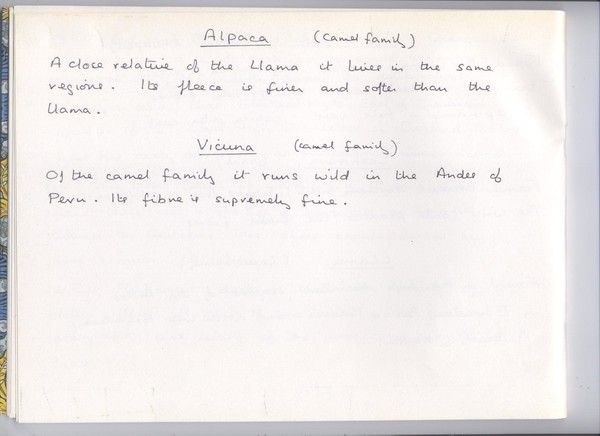 Alpaca (camel family)
A close relative of the Llama it lives in the same
regions. Its fleece is finer and softer than the
Llama.
Vicuna (camel family)
Of the camel family it runs wild in the Andes of
Peru. Its fibre is supremely fine.